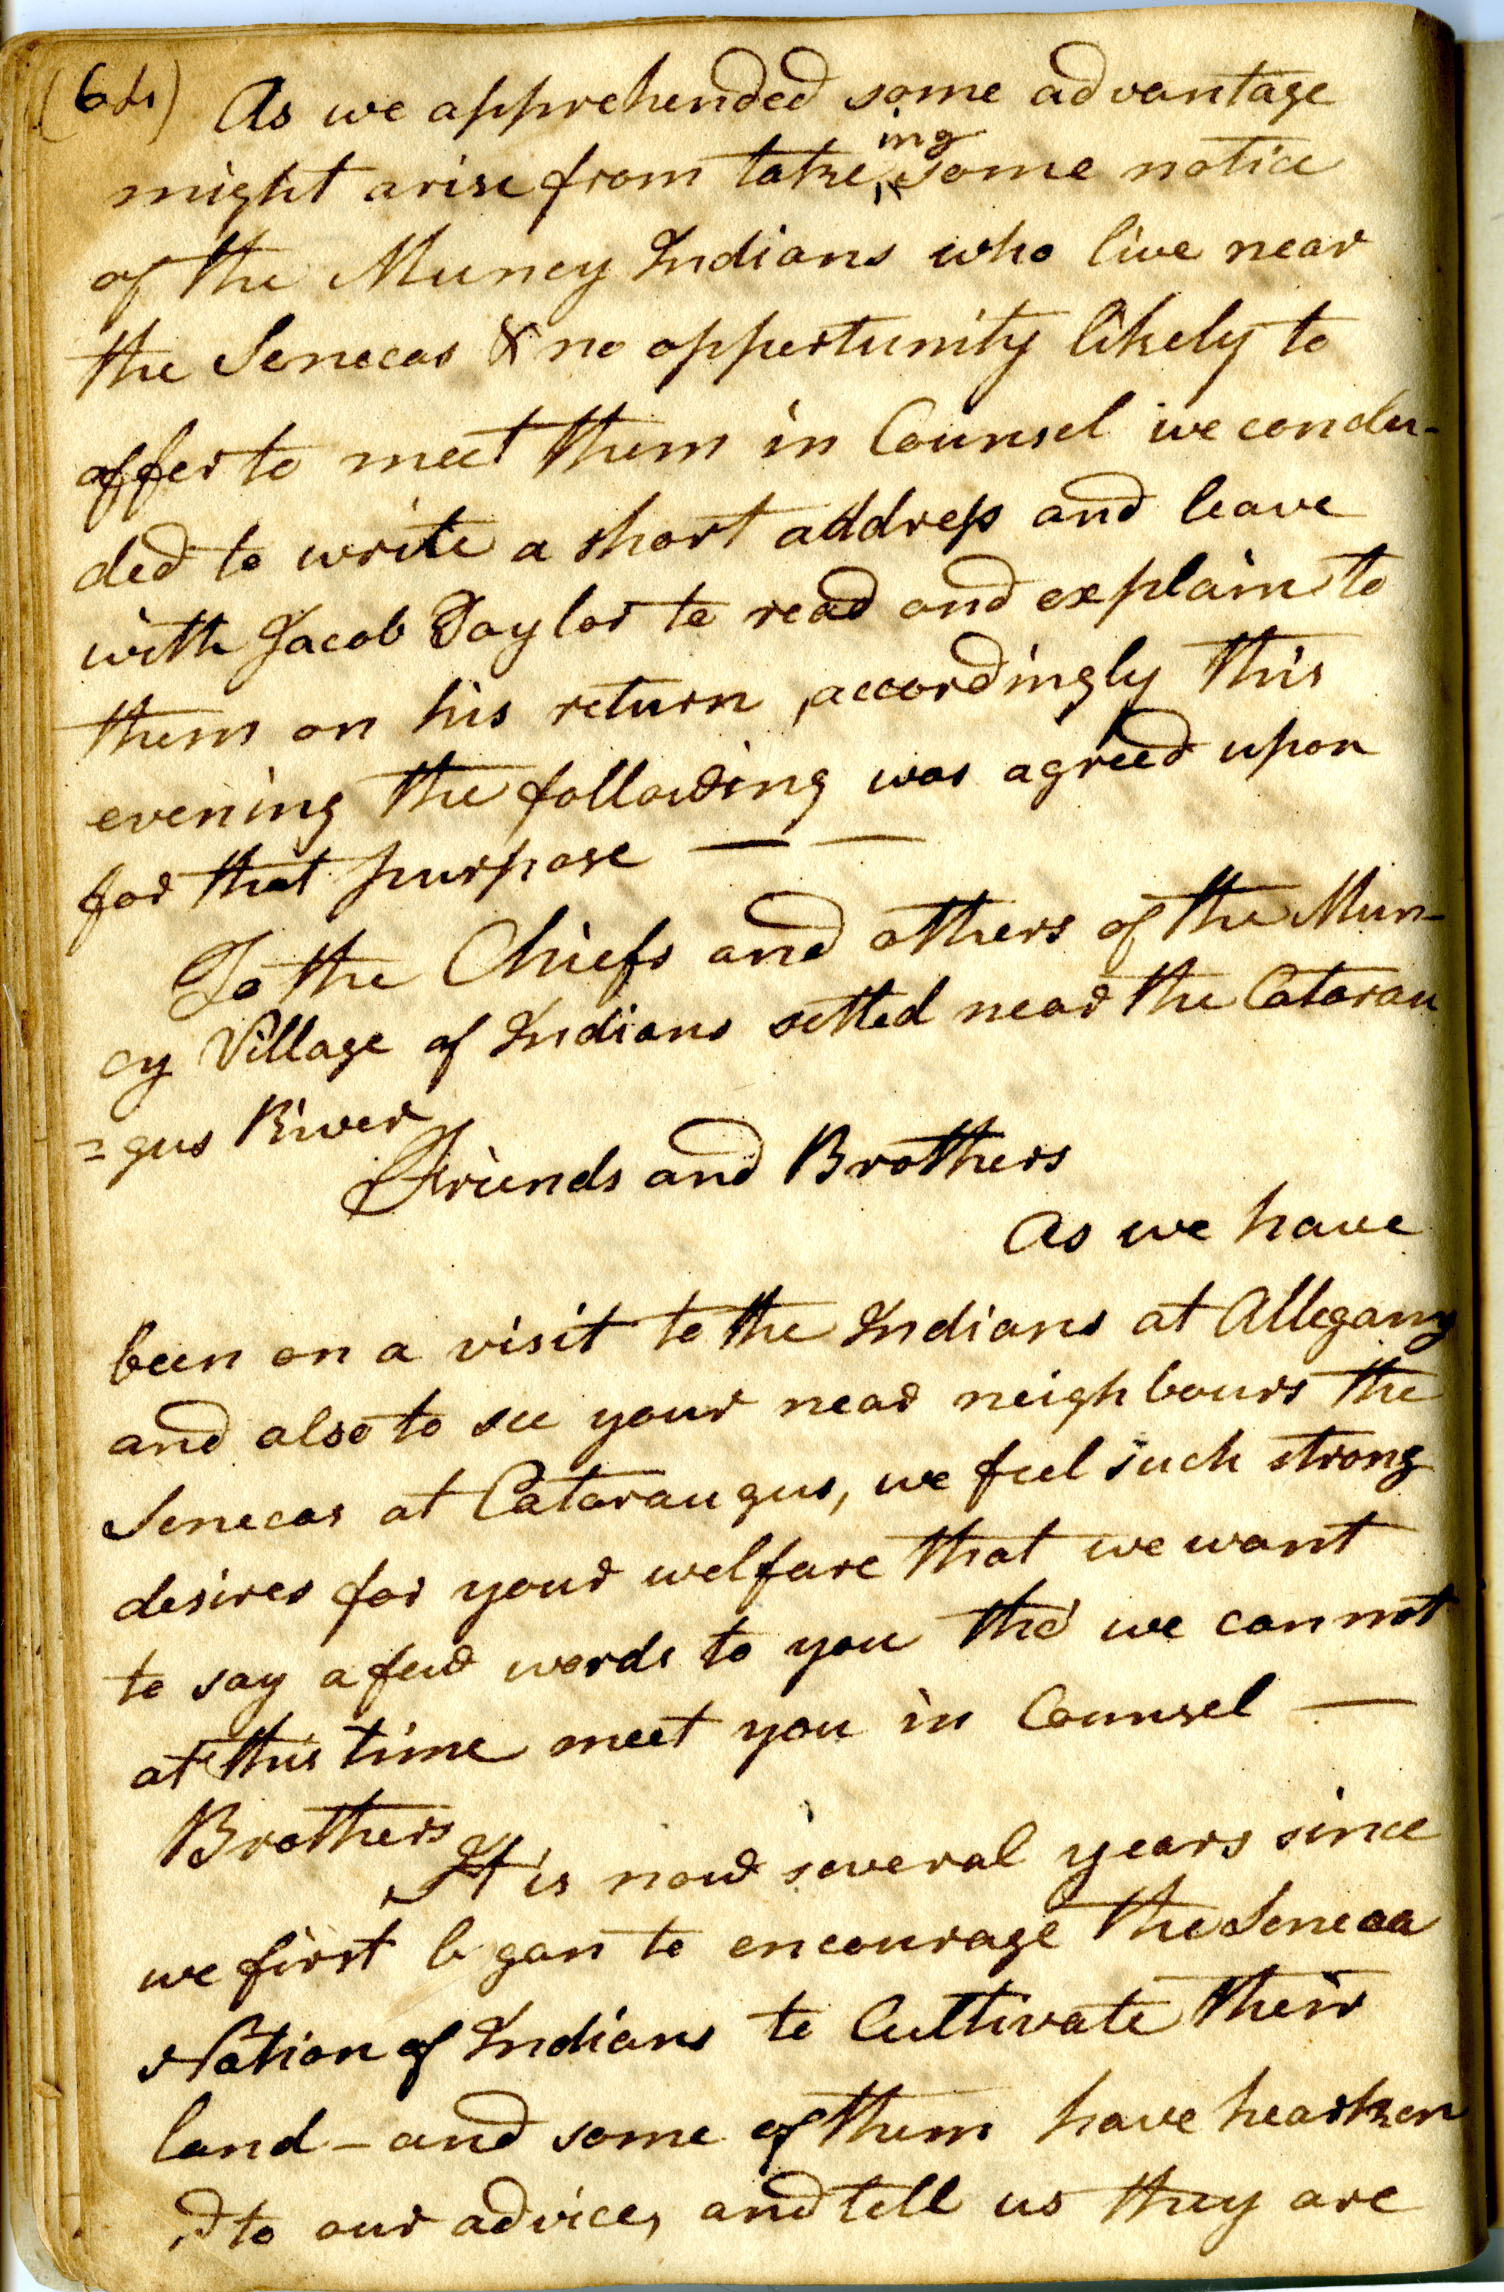 (64) As we apprehended some advantage
might arise from take ing some notice
of the Muncy Indians who live near
the Senecas & no oppertunity likely to
offer to meet them in Counsel we conclu-
ded to write a short address and leave
with Jacob Taylor to read and explain to
them on his return, accordingly this
evening the following was agreed upon
for that purpose — —
To the Chiefs and others of the Mun-
cy Village of Indians settled near the Catarau
=gus River
Friends and Brothers
As we have
been on a visit to the Indians at Allegany
and also to see your near neighbours the
Senecas at Cataraugus, we feel such strong
desires for your welfare that we want
to say a few words to you tho' we cannot
at this time meet you in Counsel —
Brothers
It is now several years since
we first began to encourage the Seneca
Nation of Indians to Cultivate their
land – and some of them have hearken
d to our advice, and tell us they are